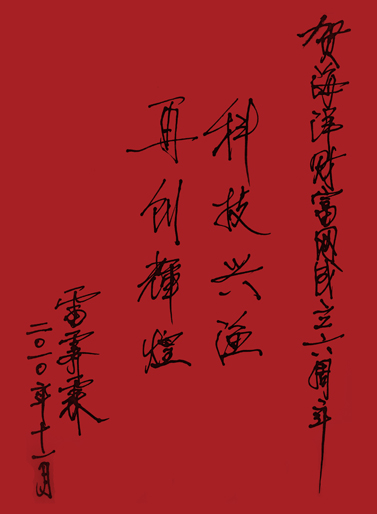 贺海洋财富网成立六周年
科技兴渔
再创辉煌
雷霁霖
二〇一〇年十一月